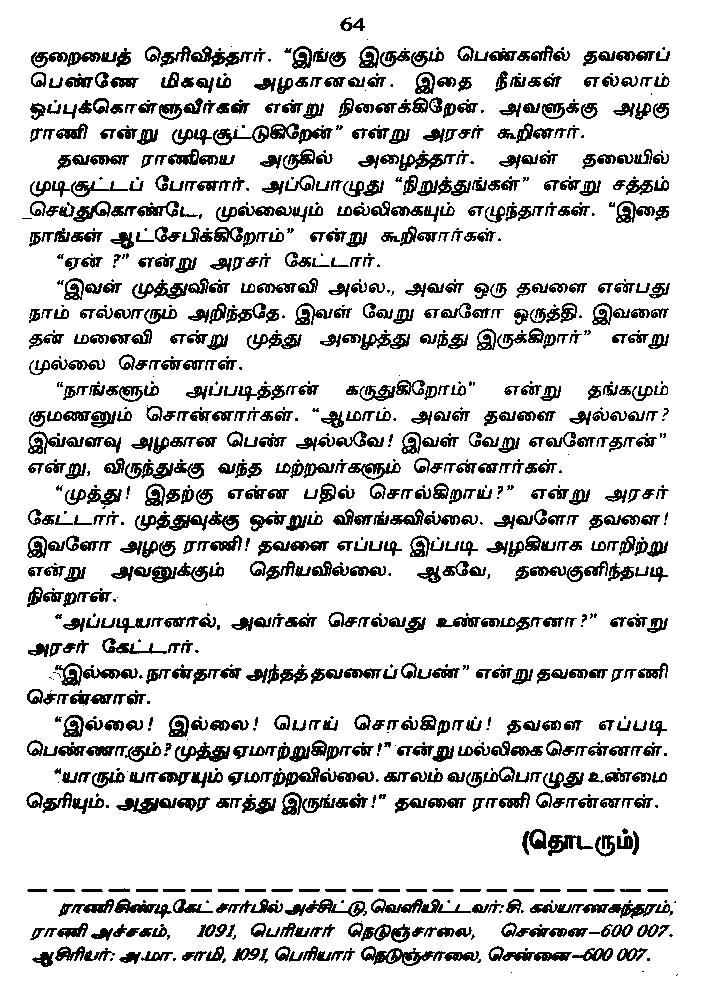 64
குறையைத் தெரிவித்தார். “இங்கு இருக்கும் பெண்களில் தவளைப்
பெண்ணே மிகவும் அழகானவள். இதை நீங்கள் எல்லாம்
ஒப்புக்கொள்ளுவீர்கள் என்று நினைக்கிறேன். அவளுக்கு அழகு
ராணி என்று முடிசூட்டுகிறேன்” என்று அரசர் கூறினார்.
தவளை ராணியை அருகில் அழைத்தார். அவள் தலையில்
முடிசூட்டப் போனார். அப்பொழுது “நிறுத்துங்கள்” என்று சத்தம்
செய்துகொண்டே, முல்லையும் மல்லிகையும் எழுந்தார்கள். “இதை
நாங்கள் ஆட்சேபிக்கிறோம்” என்று கூறினார்கள்.
“ஏன் ?” என்று அரசர் கேட்டார்.
“இவள் முத்துவின் மனைவி அல்ல., அவள் ஒரு தவளை என்பது
நாம் எல்லாரும் அறிந்ததே. இவள் வேறு எவளோ ஒருத்தி. இவளை
தன் மனைவி என்று முத்து அழைத்து வந்து இருக்கிறார்” என்று
முல்லை சொன்னாள்.
“நாங்களும் அப்படித்தான் கருதுகிறோம்” என்று தங்கமும்
குமணனும் சொன்னார்கள். “ஆமாம். அவள் தவளை அல்லவா?
இவ்வளவு அழகான பெண் அல்லவே! இவள் வேறு எவளோதான்”
என்று, விருந்துக்கு வந்த மற்றவர்களும் சொன்னார்கள்.
“முத்து! இதற்கு என்ன பதில் சொல்கிறாய்?” என்று அரசர்
கேட்டார். முத்துவுக்கு ஒன்றும் விளங்கவில்லை. அவளோ தவளை!
இவளோ அழகு ராணி! தவளை எப்படி இப்படி அழகியாக மாறிற்று
என்று அவனுக்கும் தெரியவில்லை. ஆகவே, தலைகுனிந்தபடி
நின்றான்.
“அப்படியானால், அவர்கள் சொல்வது உண்மைதானா?” என்று
அரசர் கேட்டார்.
“இல்லை. நான்தான் அந்தத் தவளைப் பெண்” என்று தவளை ராணி
சொன்னாள்.
“இல்லை! இல்லை! பொய் சொல்கிறாய்! தவளை எப்படி
பெண்ணாகும்? முத்து ஏமாற்றுகிறான்!” என்று மல்லிகை சொன்னாள்.
“யாரும் யாரையும் ஏமாற்றவில்லை. காலம் வரும்பொழுது உண்மை
தெரியும். அதுவரை காத்து இருங்கள்!” தவளை ராணி சொன்னாள்.
(தொடரும்)
ராணி சிண்டிகேட் சார்பில் அச்சிட்டு, வெளியிட்டவர்: சி. கல்யாணசுந்தரம்,
ராணி அச்சகம், 1091, பெரியார் நெடுஞ்சாலை, சென்னை–600 007.
ஆசிரியர்: அ.மா. சாமி, 1091, பெரியார் நெடுஞ்சாலை, சென்னை–600 007.